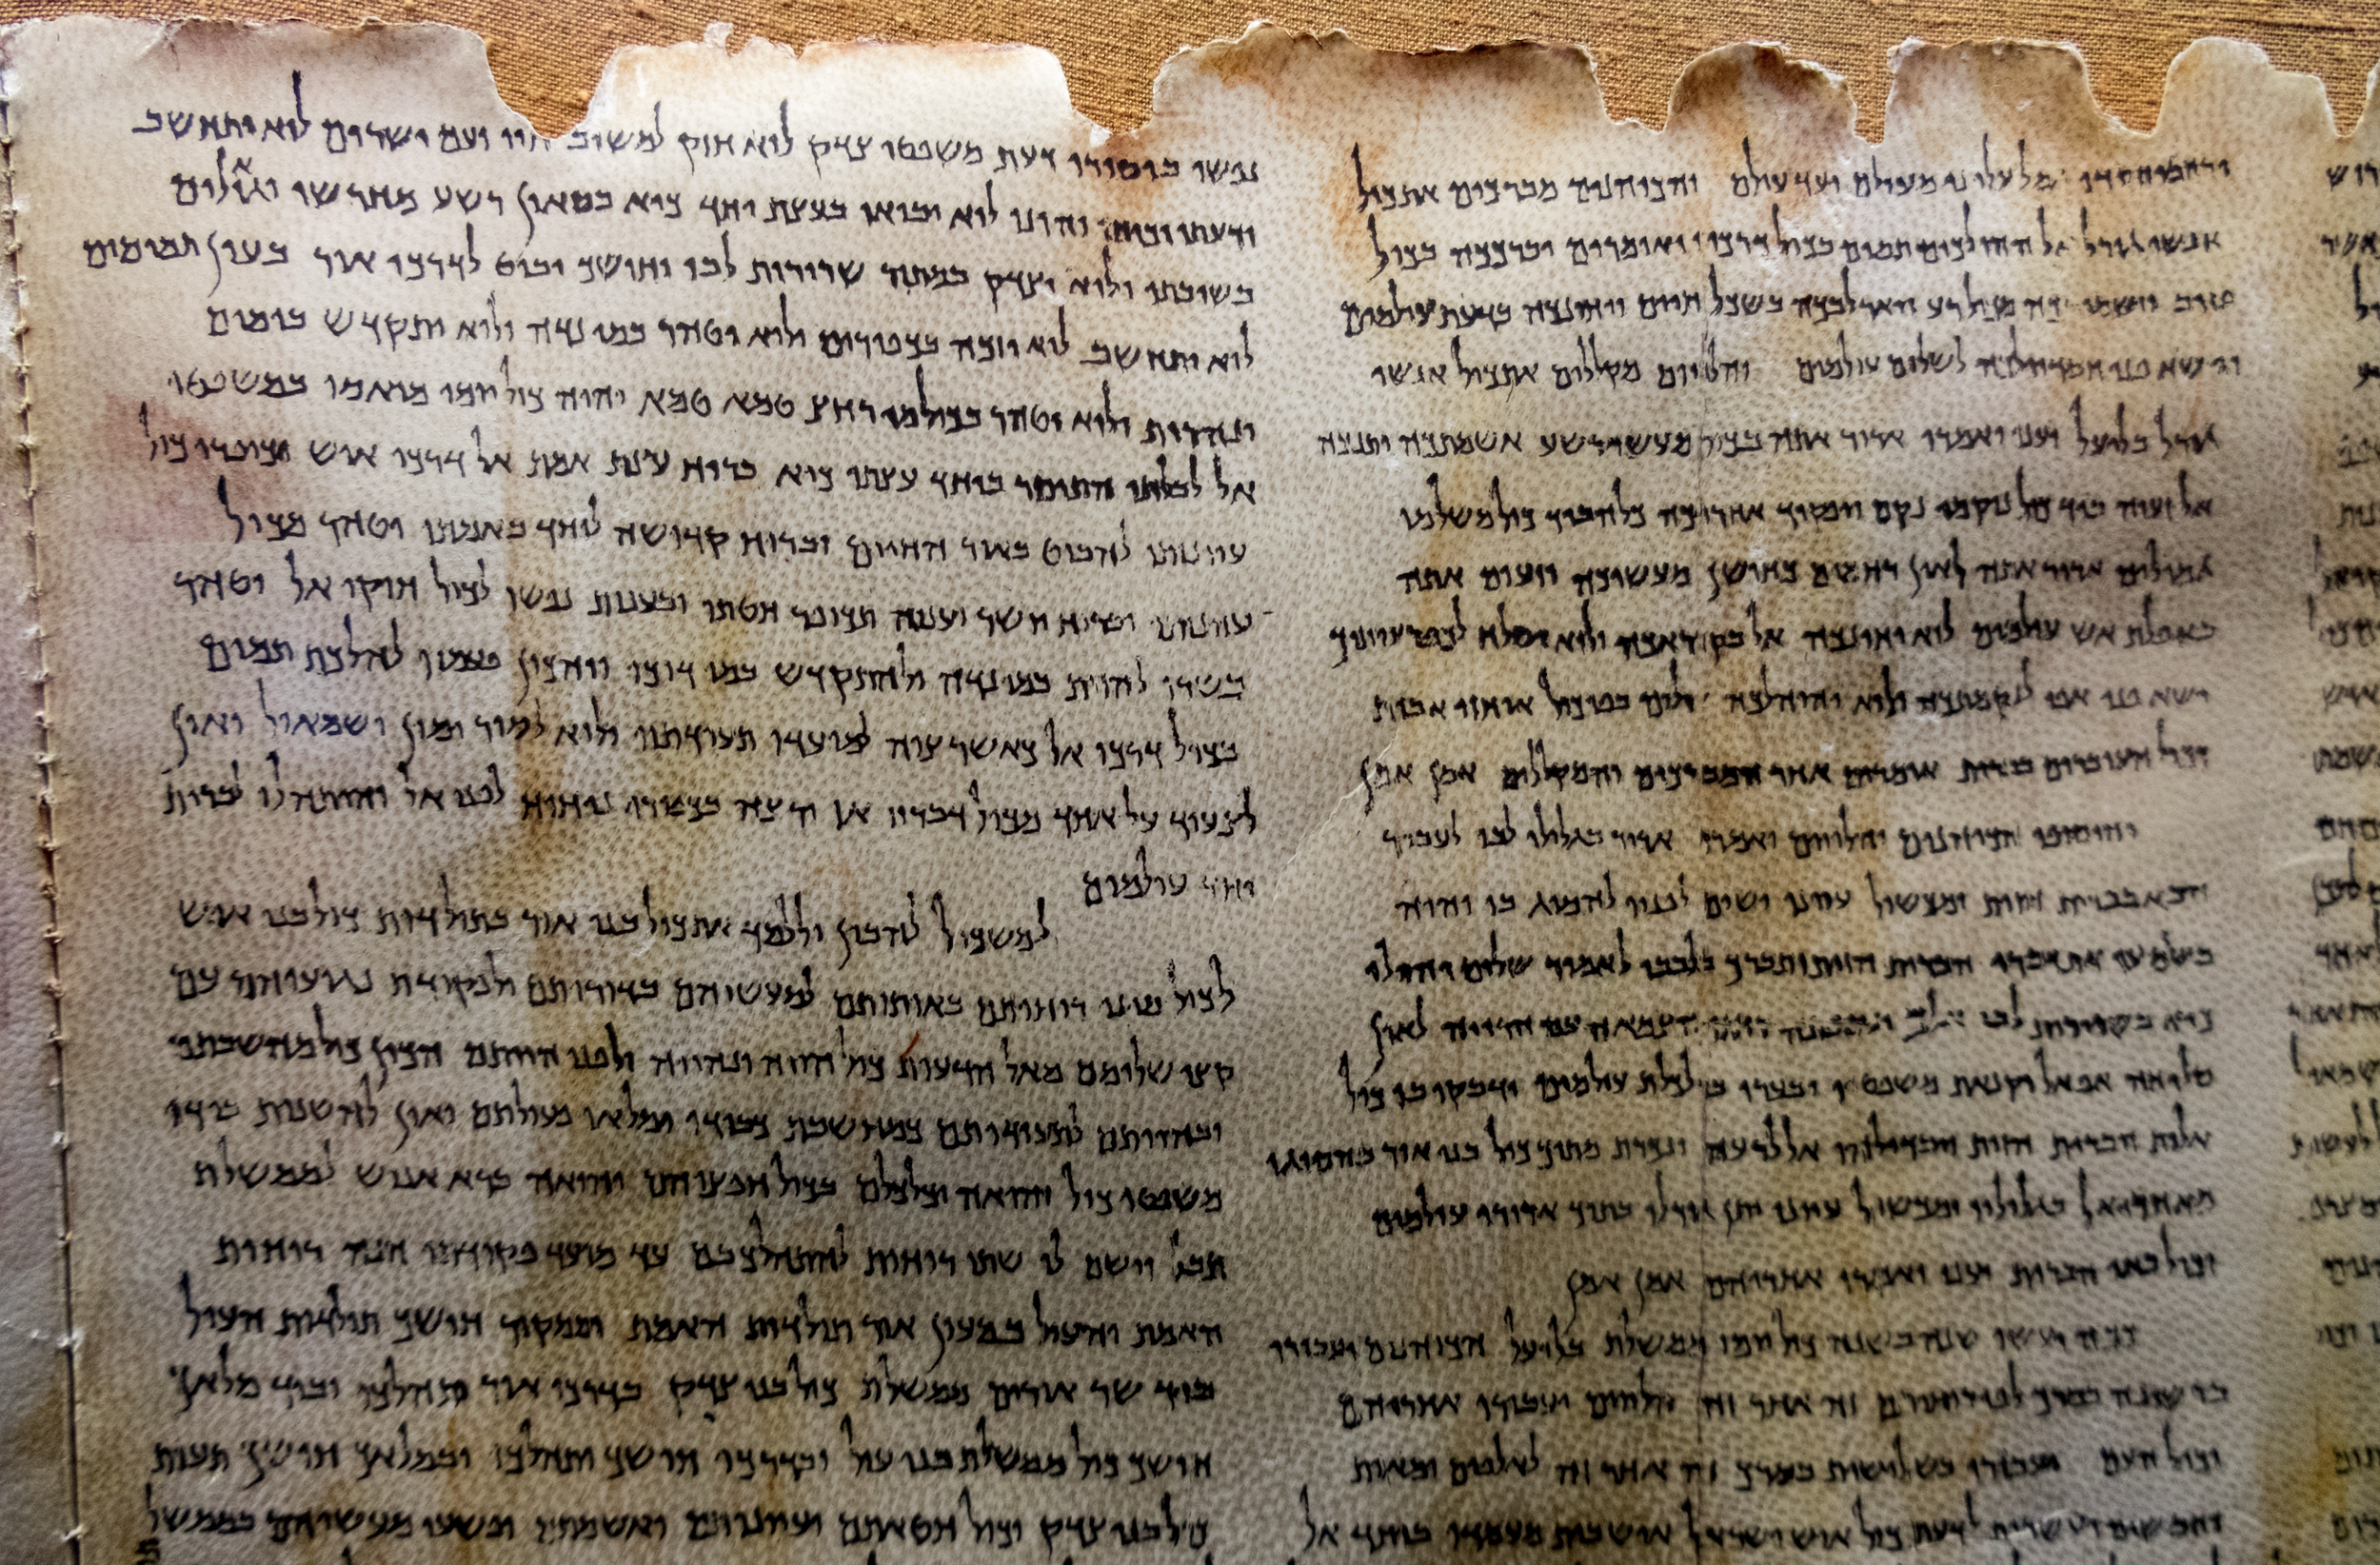 ורחמי חסדו גמל עלינו מעולם ועד עולם והכוהנים מברכים את כול
אנשי גורל אל ההולכים תמים בכול דרכיו ואומרים יברככה בכול
טוב וישמורכה מכול רע ויאר לבכה בשכל חיים ויחונכה בדעת עולמים
וישא פני חסדיו לכה לשלום עולמים והלויים מקללים את כול אנשי
גורל בליעל וענו ואמרו ארור אתה בכול מעשי רשע אשמתכה יתנכה
אל זעוה ביד כול נוקמי נקם ויפקוד אחריכה כלה ביד כול משלמי
גמולים ארור אתה לאין רחמים כחושך מעשיכה וזעום אתה
באפלת אש עולמים לוא יחונכה אל בקוראכה ולוא יסלח לכפר עווניך
ישא פני אפו לנקמתכה ולוא יהיה לכה שלום בפי כול אוחזי אבות
וכול העוברים בברית אומרים אחר המברכים והמקללים אמן אמן
והוסיפו הכוהנים והלויים ואמרו ארור בגלולי לבו לעבור
הבא בברית הזות ומכשול עוונו ישים לפניו להסוג בו והיה
בשומעו את דברי הברית הזות יתברך בלבבו לאמור שלום יהי לי
כיא בשרירות לבי אלך ונספתה רוחו הצמאה עם הרווה לאין
סליחה אף אל וקנאת משפטיו יבערו בו לכלת עולמים ודבקו בו כול
אלות הברית הזות ויבדילהו אל לרעה ונכרת מתוך כול בני אור בהסוגו
מאחרי אל בגלוליו ומכשול עוונו יתן גורלו בתוך ארורי עולמים
וכול באי הברית יענו ואמרו אחריהם אמן אמן
ככה יעשו שנה בשנה כול יומי ממשלת בליעל הכוהנים יעבורו
ברשונה בסרך לפי רוחותם זה אחר זה והלויים יעבורו אחריהם
וכול העם יעבורו בשלישית בסרך זה אחר זה לאלפים ומאות
וחמשים ועשרות לדעת כול איש ישראל איש בית מעמדו ביחד אל
נפשו ביסורי דעת משפטי צדק לוא חזק למשוב חייו ועם ישרים לוא יתחשב
ודעתו וכוחו והונו לוא יבואו בעצת יחד כיא בסאון רשע מחרשו וגאולים
בשובתו ולוא יצדק במתור שרירות לבו וחושך יביט לדרכי אור בעין תמימים
לוא יתחשב לוא יזכה בכפורים ולוא יטהר במי נדה ולוא יתקדש בימים
ונהרות ולוא יטהר בכול מי רחץ טמא טמא יהיה כול יומי מואסו במשפטי
אל לבלתי התיסר ביחד עצתו כיא ברוח עצת אמת אל דרכי איש יכופרו כול
עוונותו להביט באור החיים וברוח קדושה ליחד באמתו יטהר מכול
עוונותו וברוח יושר וענוה תכופר חטתו ובענות נפשו לכול חוקי אל יטהר
בשרו להזות במי נדה ולהתקדש במי דוכי ויהכין פעמיו להלכת תמים
בכול דרכי אל כאשר צוה למועדי תעודתיו ולוא לסור ימין ושמאול ואין
לצעוד על אחד מכול דבריו אז ירצה בכפורי ניחוח לפני אל והיתה לו לברית
יחד עולמים
למשכיל להבין וללמד את כול בני אור בתולדות כול בני איש
לכול מיני רוחותם באותותם למעשיהם בדורותם ולפקודת נגועיהם עם
קצי שלומם מאל הדעות כול הויה ונהייה ולפני היותם הכין כול מחשבתם
ובהיותם לתעודותם כמחשבת כבודו ימלאו פעולתם ואין להשנות בידו
משפטי כול והואה יכלכלם בכול חפציהם והואה ברא אנוש לממשלת
תבל וישם לו שתי רוחות להתהלך בם עד מועד פקודתו הנה רוחות
האמת והעול במעון אור תולדות האמת וממקור חושך תולדות העול
ביד שר אורים ממשלת כול בני צדק בדרכי אור יתהלכו וביד מלאך
חושך כול ממשלת בני עול ובדרכי חושך יתהלכו ובמלאך חושך תעות
כול בני צדק וכול חטאתם ועוונותם ואשמתם ופשעי מעשיהם